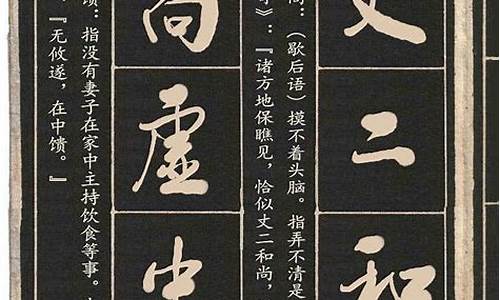 丈二和
尚：（歇后语）摸不着头脑。指弄不清是
》：『诸方地保瞧见，恰似丈二和尚，
尚虚中
馈：指没有妻子在家中主持饮食等事。
『无攸遂，在中馈。』